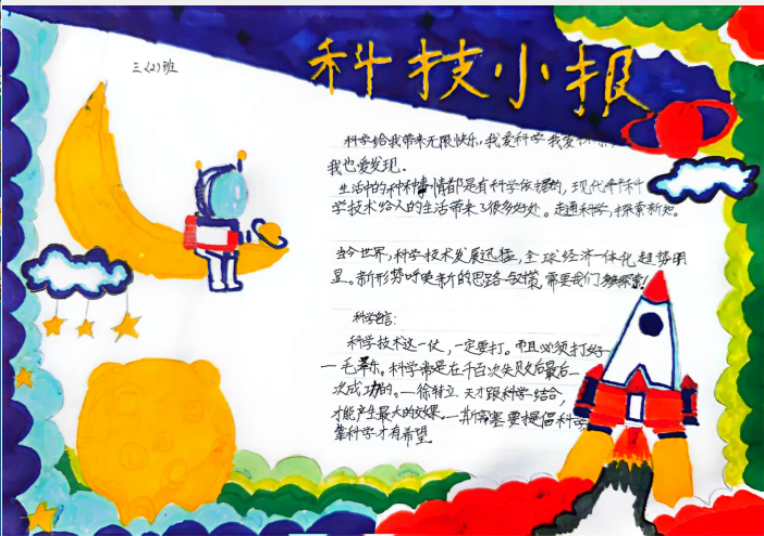 科技小报
三(2)班
科学给我带来无限快乐,我爱科学我爱
我也爱发现.
生活中的种种事情都是有科学依据的,现代科
学技术给人的生活带来了很多好处。走通科学,探索新知。
当今世界,科学技术发展迅猛,全球经济一体化趋势明
显。新形势呼唤新的思路 需要我们 探索!
科学名言:
科学技术这一仗,一定要打。而且必须打好
一毛泽东。科学常是在千百次失败后最后一
次成功的。一徐特立 天才跟科学结合,
才能产生最大的效果。一斯宾塞要提倡科学
靠科学才有希望